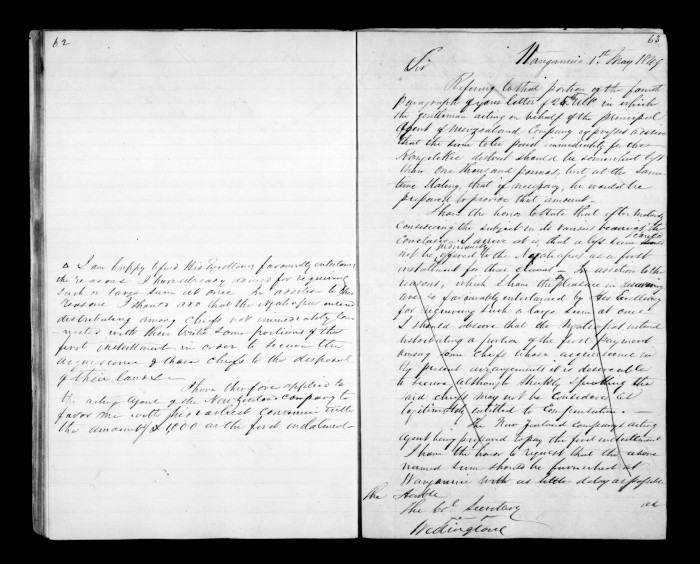 62
△ I am happy to find His Excellency favourably entertains
the reasons I have already assigned for requiring
such a large sum at once. In addition to these
reasons I should add that the Ngatiapa intend
distributing among chiefs not immediately con-
nected with their tribe some portions of the
first installment in order to secure the
acquiescence of those chiefs to the disposal
of their lands.
I have therefore applied to
the acting Agent of the New Zealand Company to
favor me with his earliest convenience with
the amount of £1,000 as the first instalment
63
Wanganui 1st May 1849
Sir
Referring to that portion of the fourth
Paragraph of your letter of 25th in which
the gentleman acting on behalf of the principal
Agent of New Zealand Company expresses a desire
that the sum to be paid immediately for the
Rangitikei district should be somewhat less
than One thousand pounds, but at the same
time stating, that if necessary, he would be
prepared to provide that amount.
I have the honor to state that after maturely
considering the subject in its various bearings the
conclusion I arrive at is, that a less sum could
not be judiciously offered to the Ngatiapas as a first
installment for their claims — In addition to the
reasons, which I have the pleasure in
are so favourably entertained by His Excellency
for requiring such a large sum at once
I should observe that the Ngatiapas intend
distributing a portion of the first payment
among some Chiefs whose acquiescence in
the present arrangements it is desirable
to secure although strictly speaking the
said chiefs may not be considered as
legitimately entitled to Compensation.
The New Zealand Company's acting
Agent being prepared to pay the first installment
I have the honor to request that the above
named sum should be furnished at
Wanganui with as little delay as possible
The Honble
The Col. Secretary
Wellington